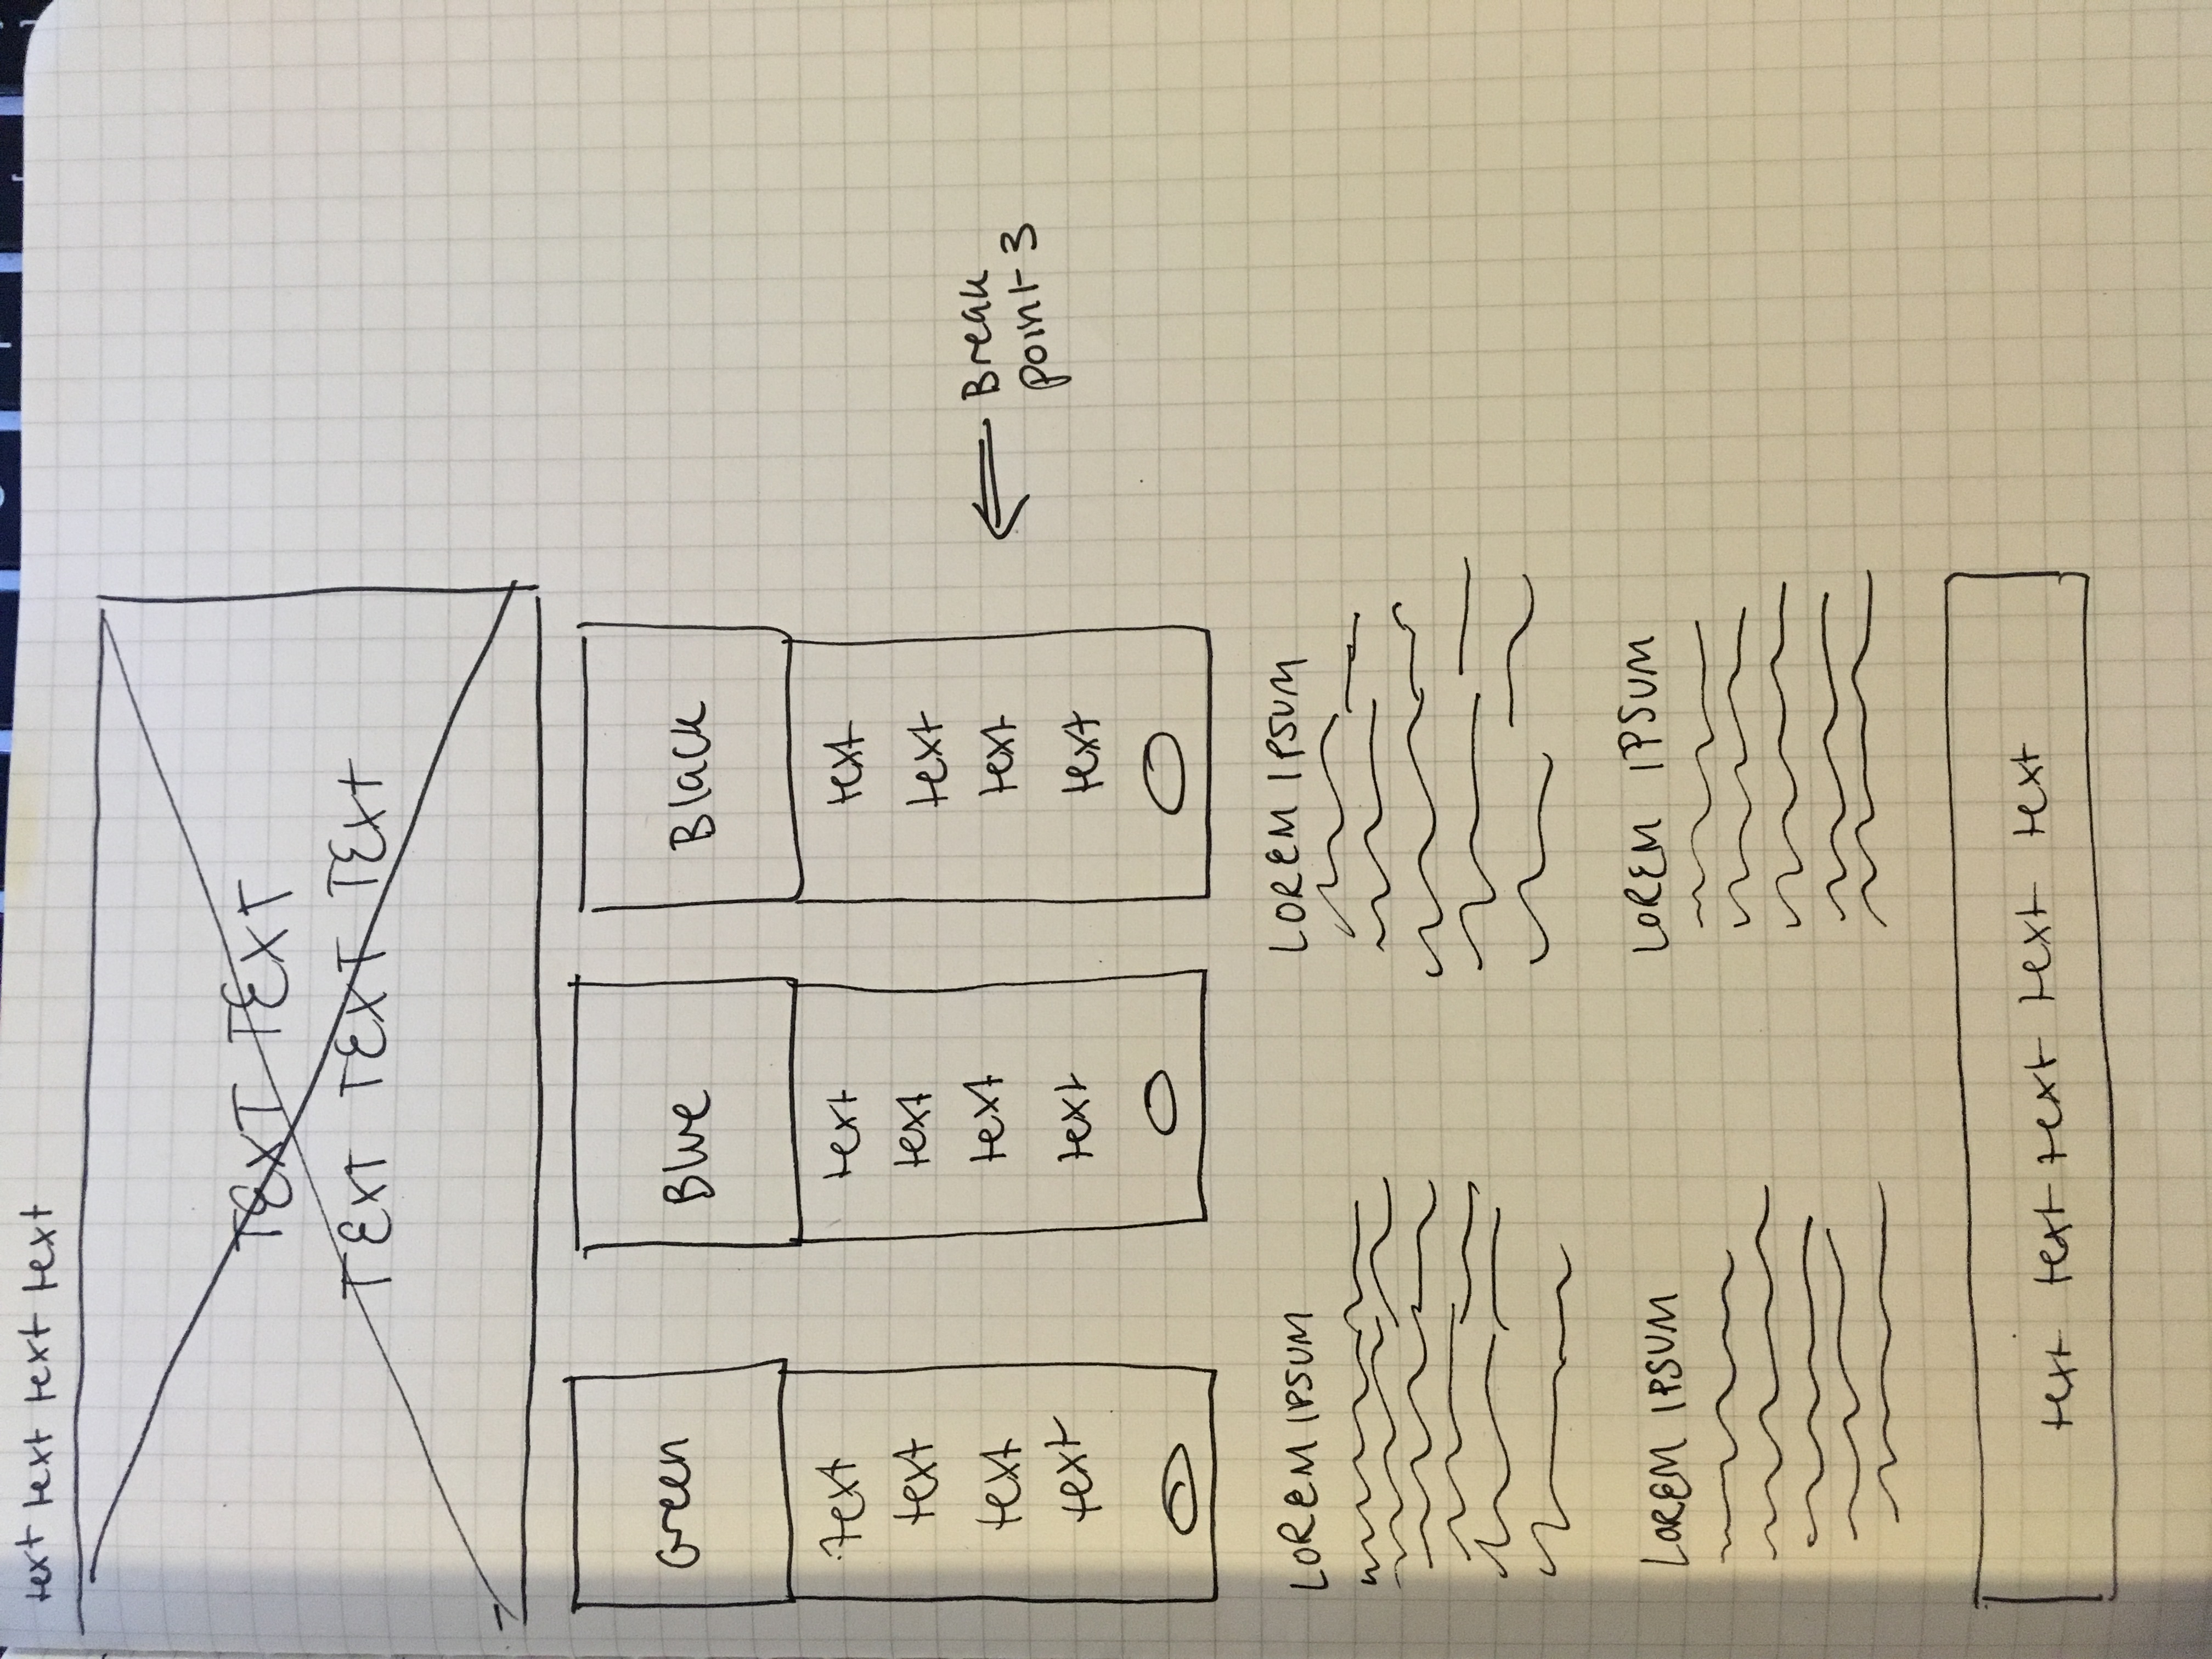 text text text text
TEXT TEXT TEXT
TEXT TEXT TEXT
Green
Blue
Black
text
text
text
text
text
text
text
text
text
text
text
text
Break
point 3
LOREM IPSUM
LOREM IPSUM
LOREM IPSUM
LOREM IPSUM
text text text text text